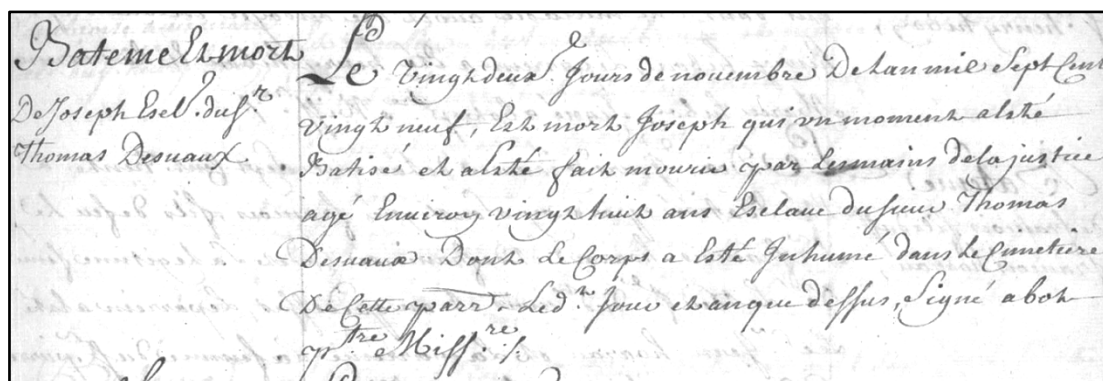 Bateme Et mort
De Joseph Escl. du Sr.
Thomas Desuaux
Le vingt deux.e Jours de novembre De Lan mil Sept Cent
vingt neuf, Est mort Joseph qui vn moment a Esté
Batisé et a Esté fait mourir par Les mains de la justice
agé Enuiron vingt huit ans Esclaue du sieur Thomas
Desuaux Dont Le Corps a Esté Inhumé dans Le Cimetiere
De Cette parr. Led.t Jour et an que dessus, Signé abot
ptre Miss.re /.